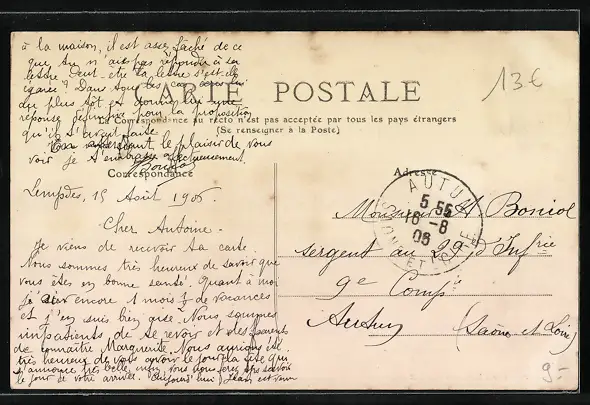 à la maison, il est assez fâché de ce
que tu n'aies pas répondu à sa
lettre Peut-être ta lettre s'est elle
égarée? Dans tous les cas
au plus tôt et donnez lui une
réponse définitive pour la proposition
qu'il t'avait faite
En attendant le plaisir de vous
voir je t'embrasse affectueusement.
CARTE POSTALE
13€
Correspondance au recto n'est pas acceptée par tous les pays étrangers
(Se renseigner à la Poste)
Correspondance
Adresse
Lempdes, 15 Août 1906
Cher Antoine.
Je viens de recevoir ta carte.
Nous sommes très heureux de savoir que
vous êtes en bonne santé. Quant à moi
j'ai encore 1 mois ½ de vacances
et j'en suis bien aise. Nous sommes
impatients de te revoir et les parents
de connaître Marguerite. Nous aurions été
très heureux de vous avoir le jour de la fête qui
s'annonce très belle, nous
le jour de votre arrivée. Aujourd'hui Jean est venu
AUTUN
5 55
16-8
06
SAONE ET LOIRE
Monsieur A.
sergent au 29 d'Inf rie
9e Comp ie
Autun (Saône et Loire)
9-